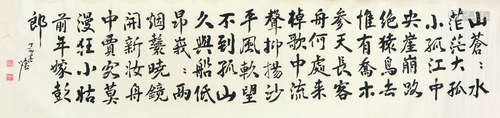 山蒼〻水
茫茫大孤
小孤江中
央崖崩路
絕猿鳥去
惟有喬木
參天長客
舟何處來
棹歌中流
聲抑揚沙
平風軟望
不到孤山
久與船低
昂峩〻兩
烟鬟曉鏡
開新妝舟
中賈客莫
漫狂小姑
前年嫁彭
郎